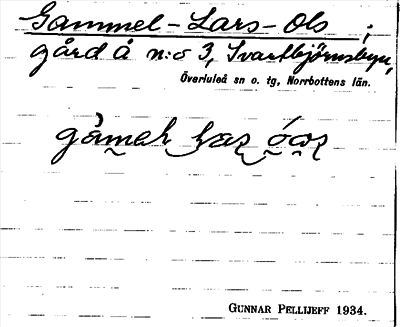 Gammel-Lars-Ols ;
gård å n:o 3, Svartbjörnsbyn,
Överluleå sn o. tg, Norrbottens län.
GUNNAR PELLIJEFF 1934.